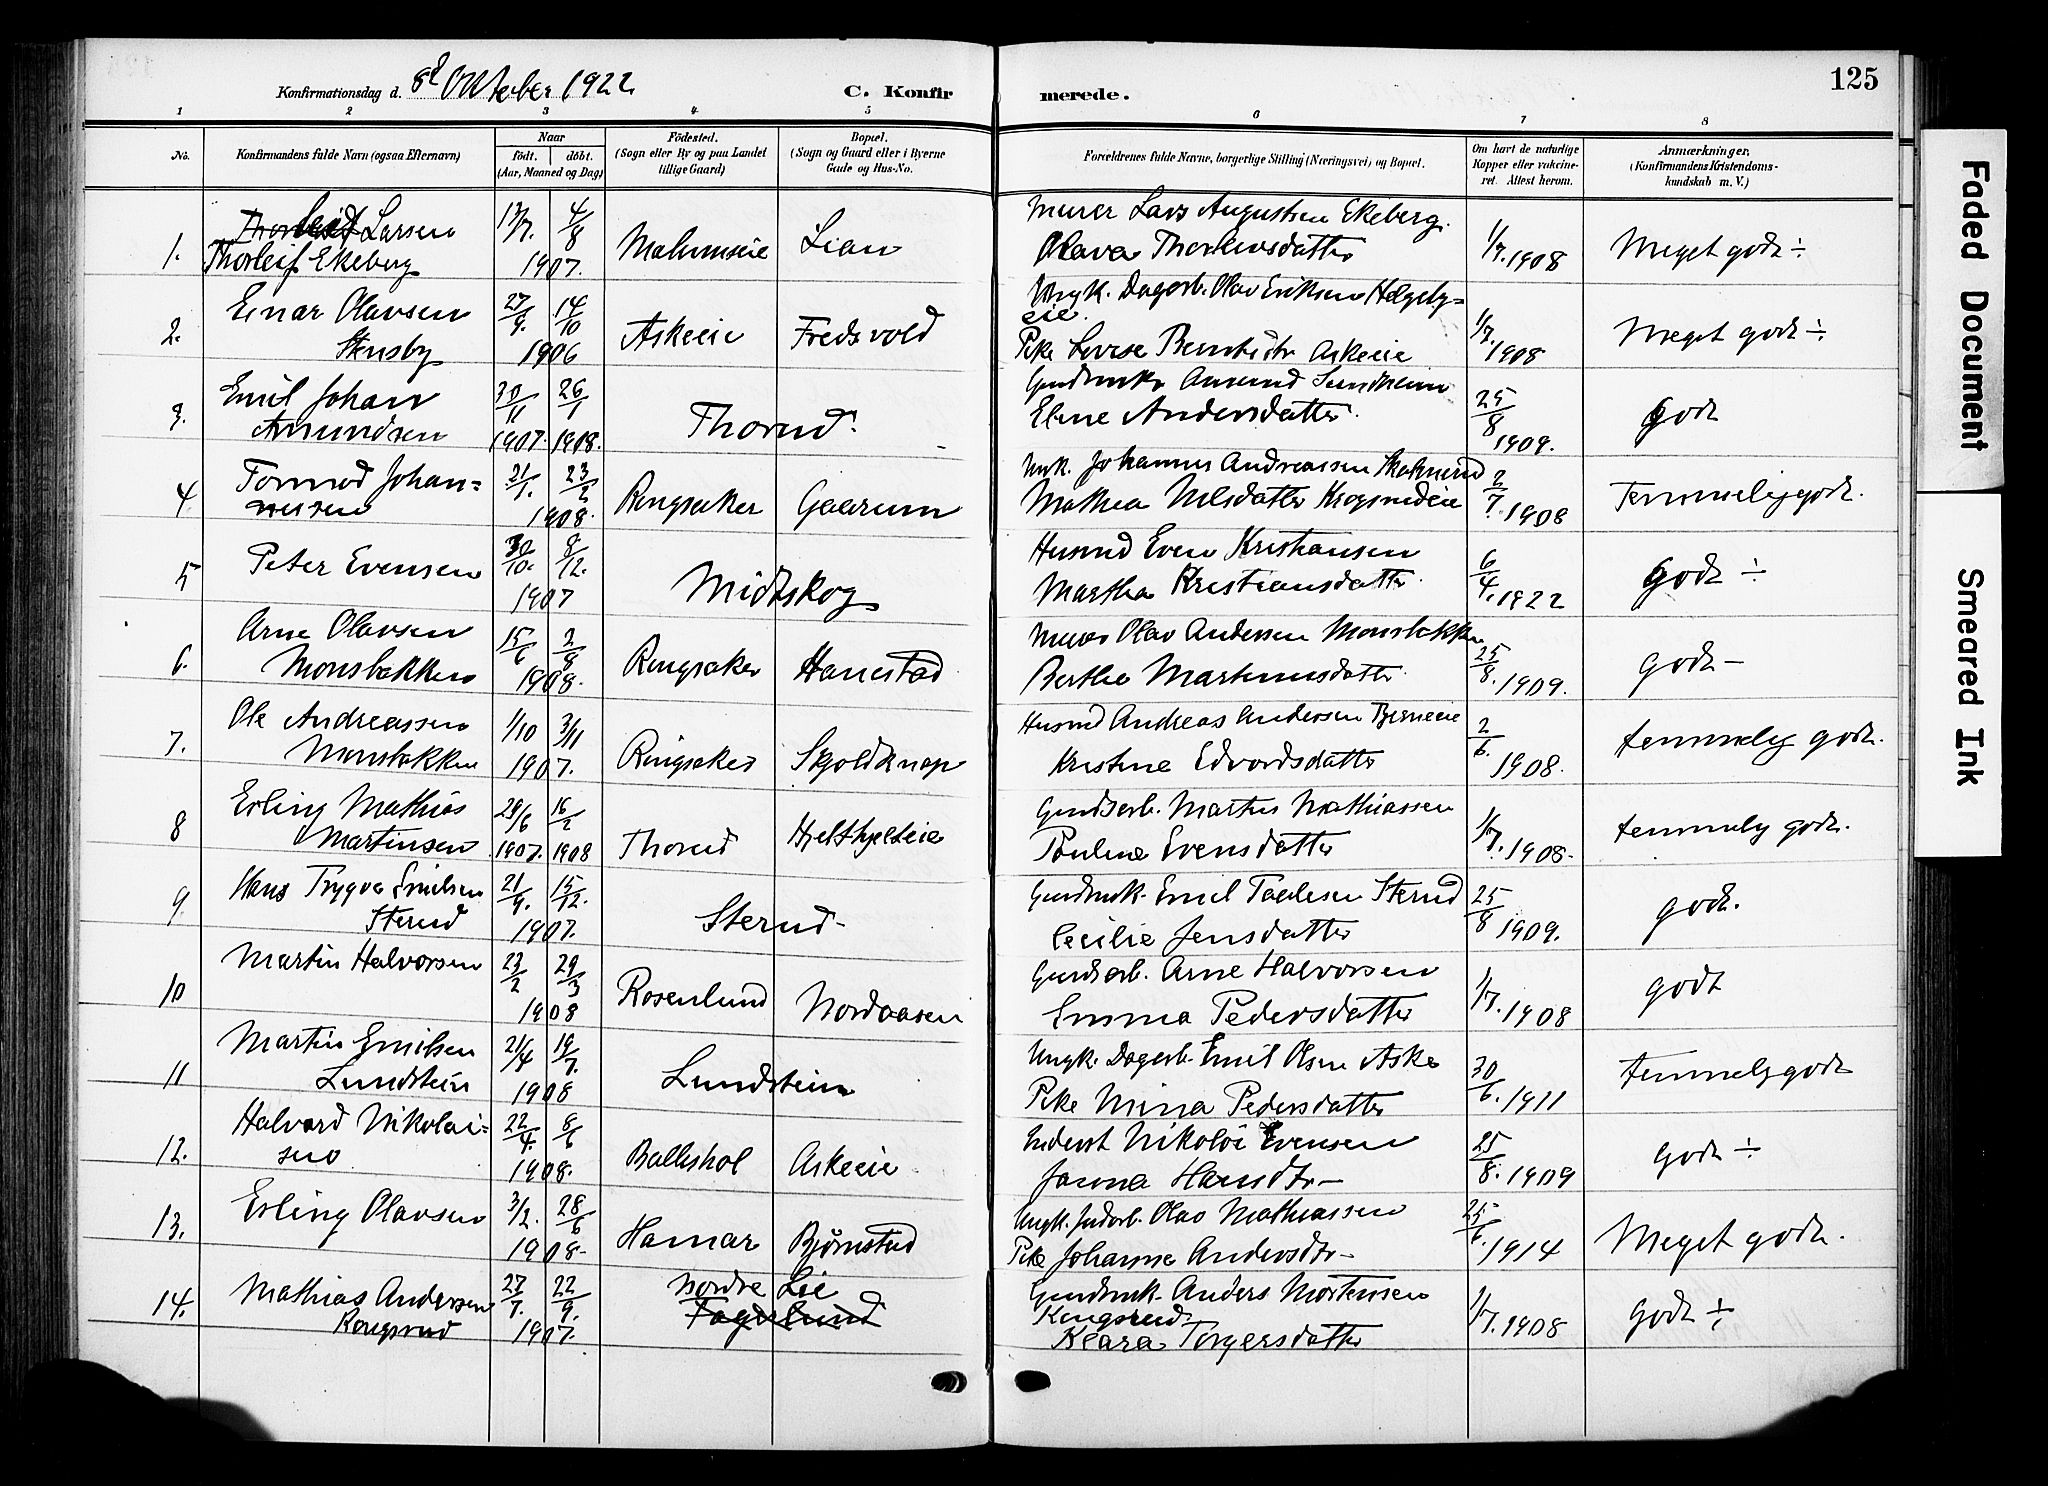 Konfirmationsdag d. 8d Oktober 1922
C. Konfir
merede.
125
1 2 3 4 5 6 7 8
No.
Konfirmandens fulde Navn (ogsaa Efternavn)
Naar
født. døbt.
(Aar, Maaned og Dag)
Fødested.
(Sogn eller By og paa Landet
tillige Gaard)
Bopæl.
(Sogn og Gaard eller i Byerne
Gade og Hus-No.
Forældrenes fulde Navne, borgerlige Stilling (Næringsvei) og Bopæl.
Om havt de naturlige
Kopper eller vakcine-
ret. Attest herom.
Anmærkninger,
(Konfirmandens Kristendoms-
kundskab m. V.)
1. Larsen 17/7. 4/8 Murer Lars Augustsen Ekeberg.
Thorleif Ekeberg 1907. Malumseie Lian Olava Thorkensdatter 1/7. 1908 Meget godt ÷
2. Einar Olavsen 27/9. 14/10 Ungk. Dagarb. Olav Eriksen Helgeby=
eie.
Stensby 1906 Askeeie Fredsvold Pike Lovise Berntsdtr Askeeie 1/7. 1908 Meget godt ÷
3. Emil Johan 30/11 26/1 Gaardbruker Amund Sundheim
Amundsen 1907. 1908. Thorud. Eline Andersdatter. 25/8 1909. Godt
4. Tormod Johan= 21/1. 23/2 Ungk. Johannes Andreassen Skolmerud
nesen 1908. Ringsaker Gaarum Mathea Nilsdatter Krogsmedeie 2/7. 1908 Temmelig godt.
5 Peter Evensen 30/10. 8/12. Husmd Even Kristiansen
1907 Midtskog Martha Kristiansdatter. 6/4. 1922 Godt ÷
6. Arne Olavsen 15/6 2/8 Murer Olav Andersen Monsbakken
Monsbakken 1908. Ringsaker Hanestad Berthe Martinusdatter. 25/8. 1909. godt —
7. Ole Andreassen 1/10 3/11 Husmd Andreas Andersen Berneeie
Monsbakken 1907. Ringsaker Skjoldknap Kristine Edvardsdatter 2/6. 1908. temmelig godt.
8 Erling Mathias 29/6 16/2 Gaardsarb. Martin Mathiassen
Martinsen 1907. 1908 Thorud Hjelthjelteie Pauline Evensdatter 1/7. 1908. temmelig godt.
9. Hans Trygve Emilsen 21/9. 15/12. Gaardbruk. Emil Paulsen Sterud
Sterud 1907. Sterud - Cecilie Jensdatter 25/8 1909. godt.
10 Martin Halvorsen 23/2 29/3 Gaardsarb. Arne Halvorsen
1908 Rosenlund Nordaasen Emma Pedersdatter 1/7. 1908 godt
11 Martin Emilsen 21/4 19/7. Ungk. Dagarb. Emil Olsen Aske
Lundstein 1908 Lundstein Pike Mina Pedersdatter 30/6. 1911 temmelig godt
12. Halvard Nikolai= 22/4. 8/6 Inderst Nikolai Evensen
sen 1908. Balleshol Askeeie Janna Hansdtr — 25/8. 1909 godt ÷
13. Erling Olavsen 3/2. 28/6 Ungk. Jordarb. Olav Mathiassen
1908. Hamar Bjørnstad Pike Johanne Andersdtr — 25/6. 1914 Meget godt.
14. Mathias Andersen 27/7. 22/9. Nordre Lie Gaardbruk. Anders Mortensen
Kongsrud 1907. Fagerlund Kongsrud.
Klara Torgersdatter 1/7. 1908 godt ÷
Faded Document
Smeared Ink